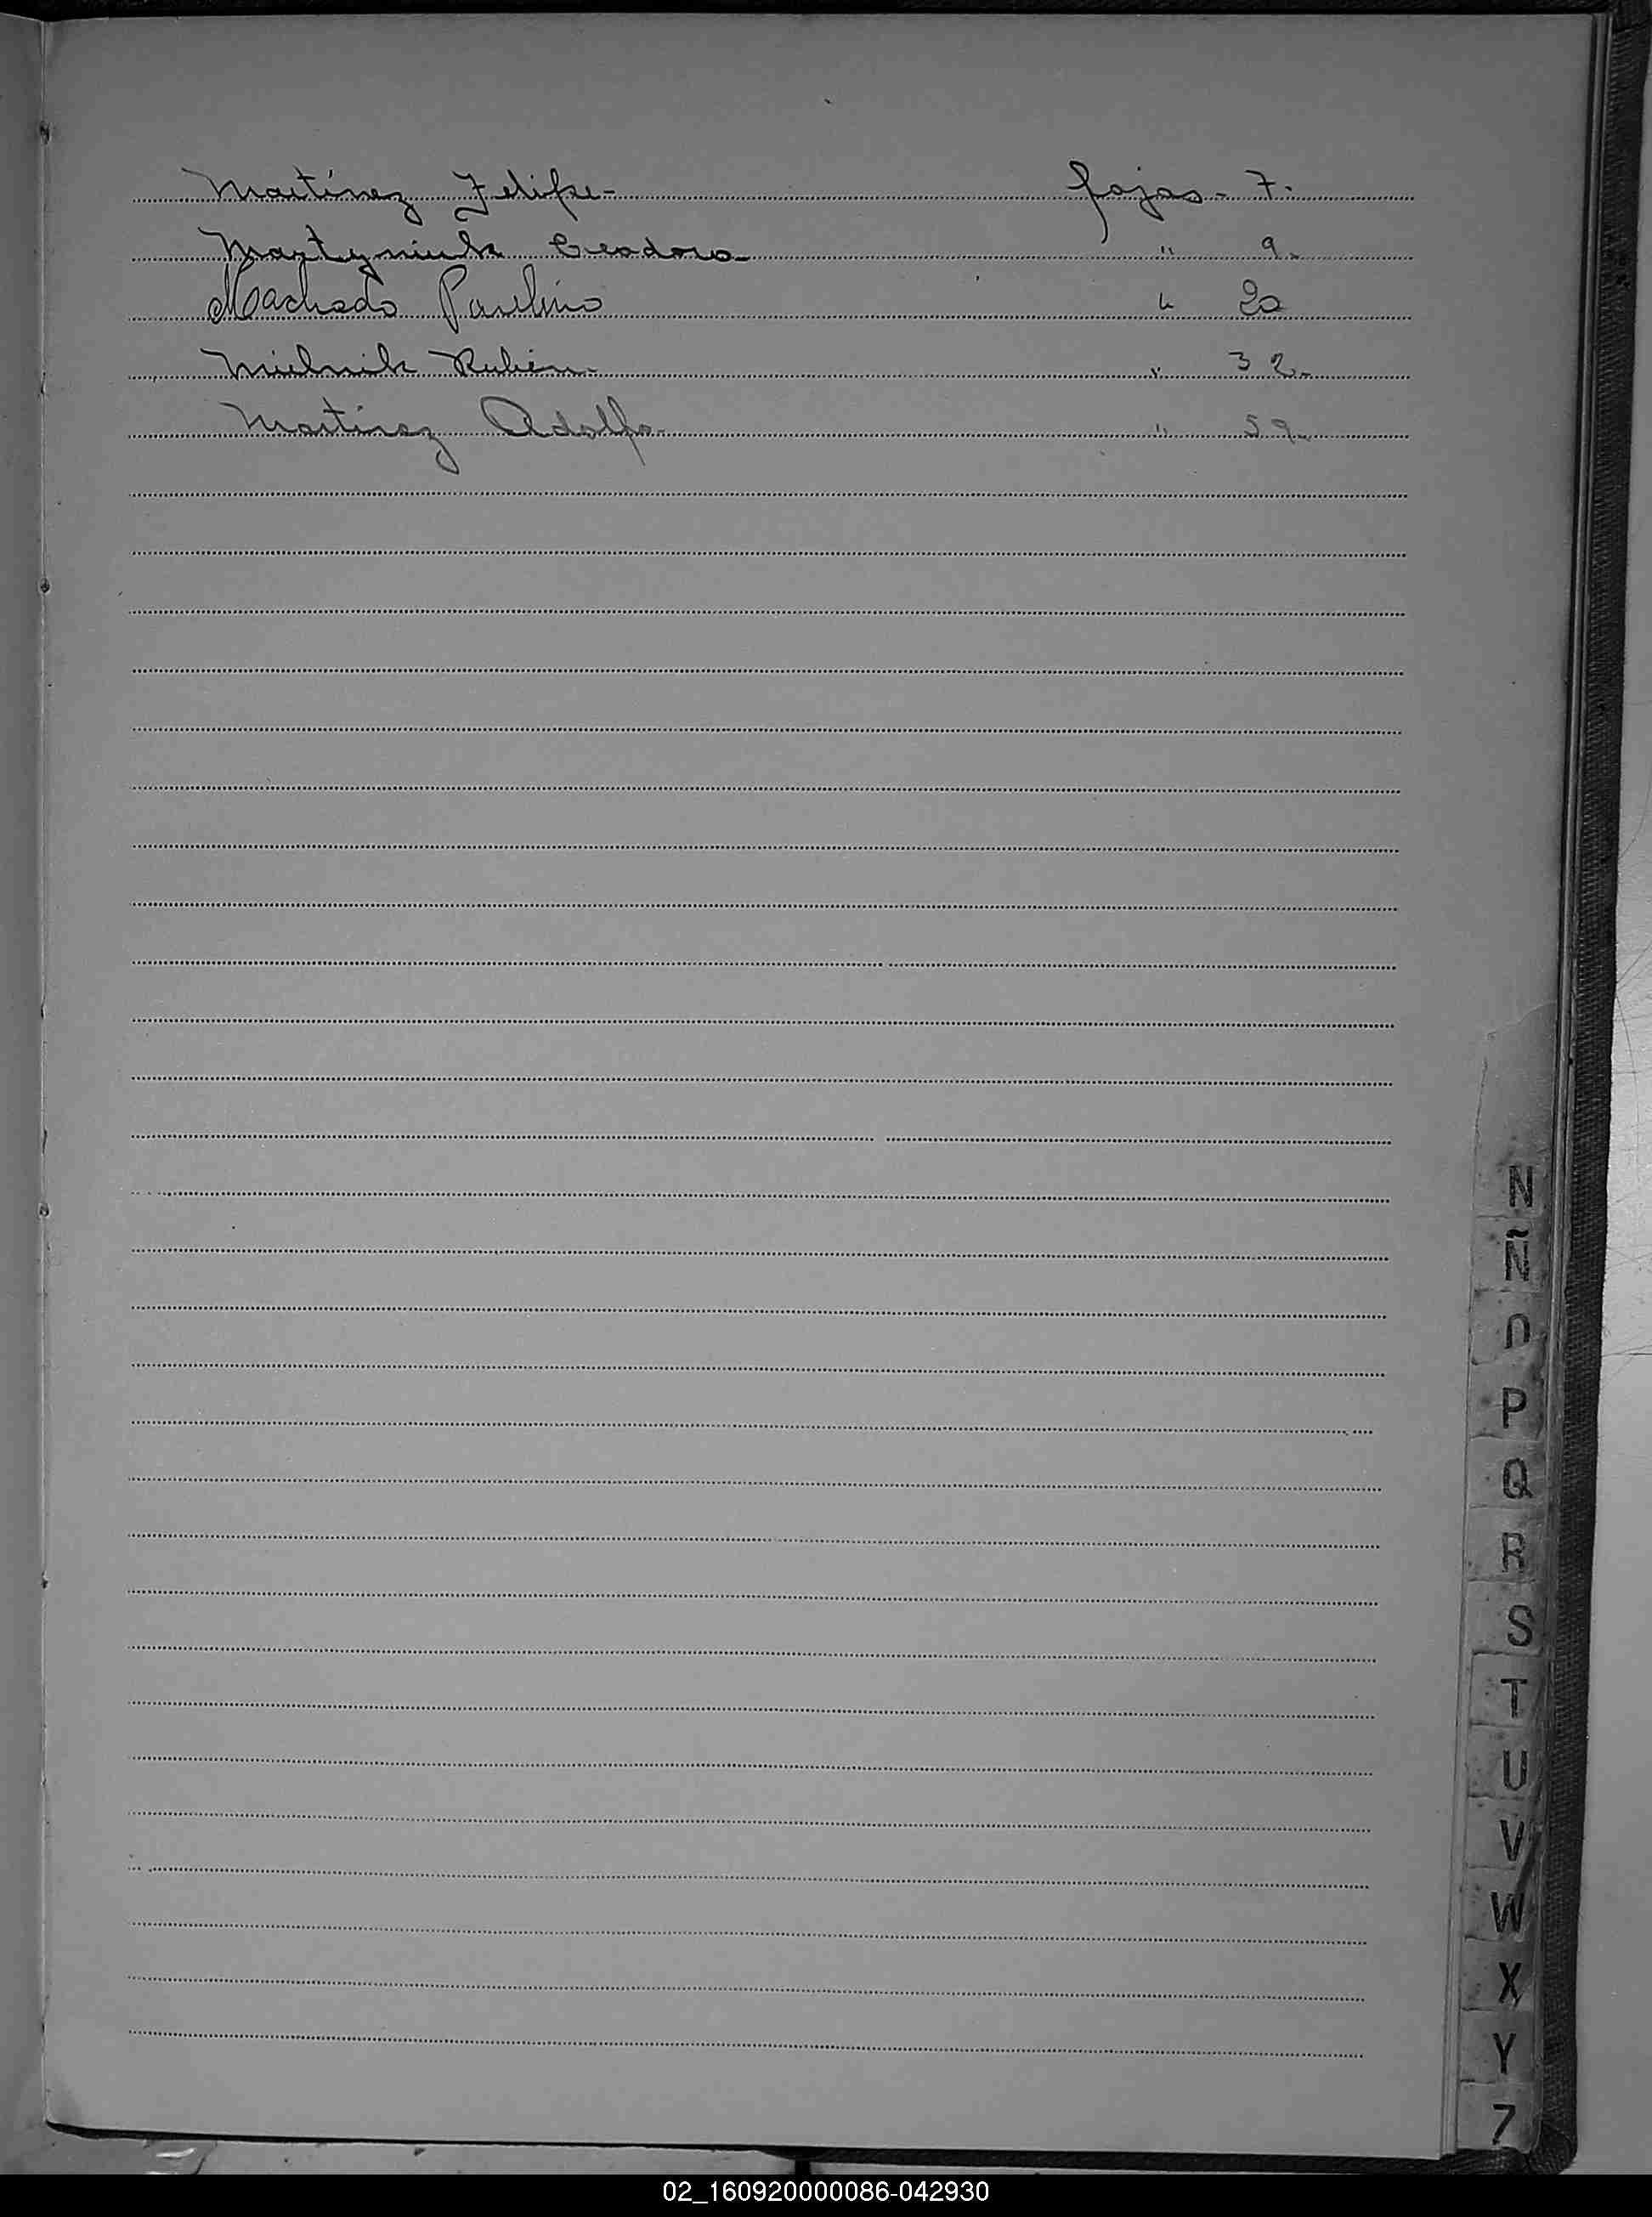 Martínez Felipe- fojas- 7-
Martyniuk Teodoro- " 9-
Machado Paulino " 20
Mielnik Rubén- " 32-
Martinez Adolfo- " 59-
N
Ñ
O
P
Q
R
S
T
U
V
W
X
Y
Z
02_160920000086-042930